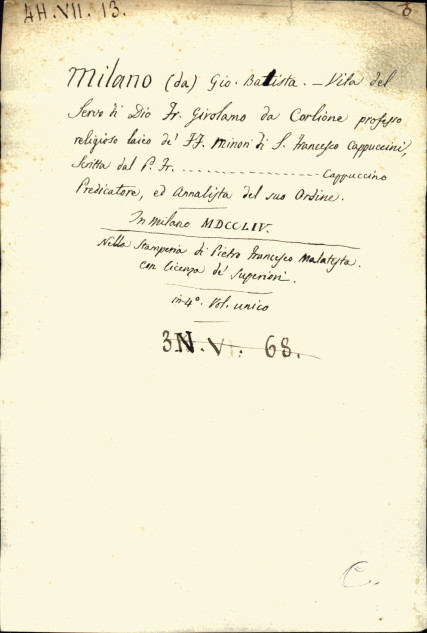 4H.VII.13.
Milano (da) Gio. Batista. – Vita del
Servo di Dio Fr. Girolamo da Corlione professo
religioso laico de' FF. Minori di S. Francesco Cappuccini,
Scritta dal P. Fr. - - - - - - - - - - - - - - - - - Cappuccino
Predicatore, ed Annalista del suo Ordine.
In Milano MDCCLIV.
Nella Stamperia di Pietro Francesco Malatesta.
con licenza de' Superiori.
in 4°. Vol. unico
3N.VI.68.
C.